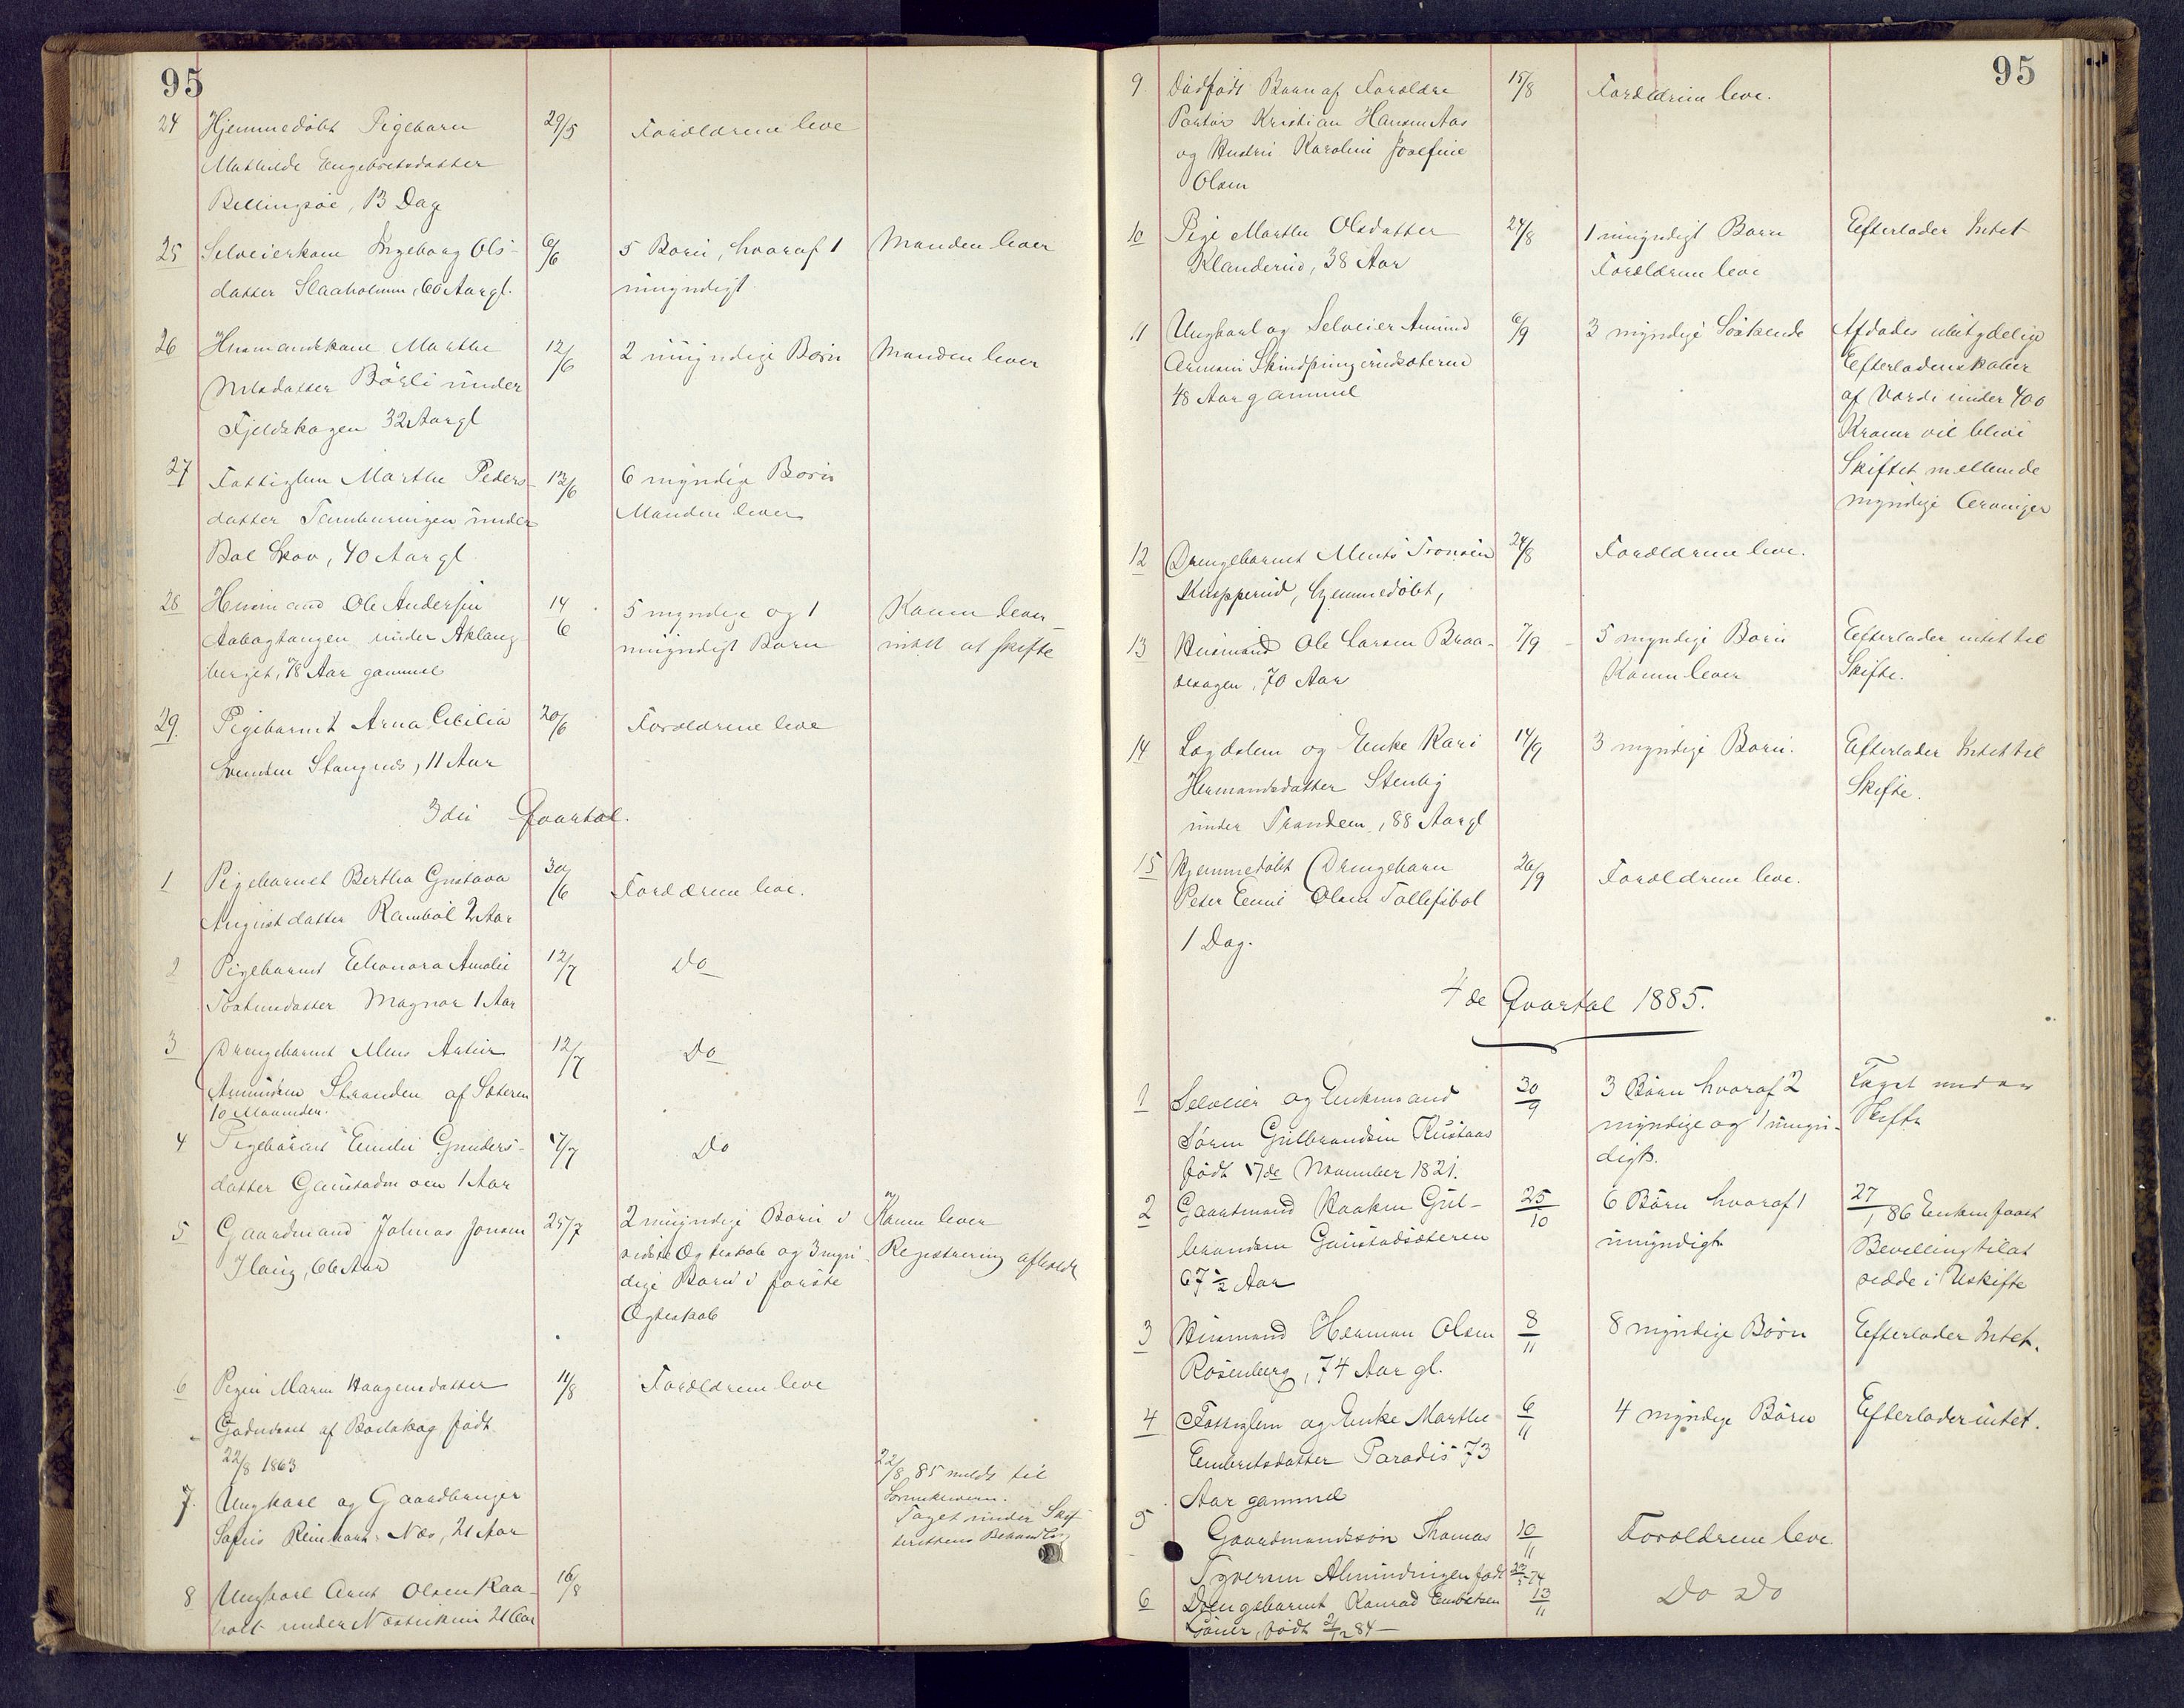 95
24 Hjemmedöbt Pigebarn 29/5 Forældrene leve
Mathilde Engebretsdatter
Bellingsöe, 13 Dage
25 Selveierkone Ingeborg Ols- 6/6 5 Børn, hvoraf 1 Manden lever
datter Slaaholmen, 60 Aar gl. umyndigt
26 Husmandskone Marthe 12/6 2 umyndige Børn Manden lever
Nilsdatter Börli under
Fjeldskogen 32 Aar gl
27 Fattiglem Marthe Peders- 13/6 6 myndige Børn
datter under Manden lever
Bol Skov, 70 Aar gl.
28 Husmand Ole Andersen 14/6 5 myndige og 1 Konen lever
Aabogtangen under Aklang umyndigt Barn intet at skifte
berget, 78 Aar gammel
29. Pigebarnet Anna Cecilia 20/6 Forældrene leve
Svendsen Stangnes, 11 Aar
3die Qvartal.
1 Pigebarnet Bertha Gustava 30/6 Forældrene leve.
Augustdatter Ramböl 2 Aar
2 Pigebarnet Elionora Amalie 12/7 Do
Tostensdatter Magnor 1 Aar
3 Drengebarnet 12/7 Do
Amundsen Stranden af Sæteren
10 Maaneder.
4 Pigebarnet Emilie Gunders- 17/7 Do
datter Gaustadmoen 1 Aar
5 Gaardmand Johnas Jonsen 25/7 2 umyndige Børn i Konen lever
Haug, 66 Aar sidste Ægteskab og 3 myn- Registrering afholdt
dige Børn i første
Ægteskab
6 Pigen Maren Haagensdatter 11/8 Forældrene leve
af födt
22/8 1863
7. Ungkarl og Gaardbruger 22/8 85 meldt til
Reinhart Næs, 21 Aar Sorenskriveren.
Taget under Skif-
terettens Behandling
8 Ungkarl Arnt Olsen Kaa- 16/8
holt under 21 Aar
95
9 Dödfödt Barn af Forældre 15/8 Forældrene leve.
Kristian Hansen Aas
og Hustru Karoline Josefine
Olsen
10 Pige Marthe Olsdatter 24/8 1 umyndigt Barn Efterlader Intet
Klanderud, 38 Aar Forældrene leve
11 Ungkarl og Selveier Amund 6/9 3 myndige Söskende Afdødes ubetydelige
48 Aar gammel Efterladenskaber
af Værdi under 400
Kroner vil blive
Skiftet mellem de
myndige Arvinger
12 Drengebarnet Tronsen 24/8 Forældrene leve.
Knapperud, hjemmedöbt,
13 Husmand Ole Larsen Braa- 7/9 5 myndige Børn Efterlader intet til
, 70 Aar Konen lever Skifte.
14 Lægdslem og Enke Kari 14/9 3 myndige Børn. Efterlader Intet til
Hermandsdatter Stenby Skifte.
under Tranden, 88 Aar gl
15 Hjemmedöbt Drengebarn 20/9 Forældrene leve.
Peter Emil Olsen Tollefsbol
1 Dag.
4de Qvartal 1885.
1 Selveier og Enkemand 30/9 3 Børn hvoraf 2 Taget under
Søren Gulbrandsen Rustaas myndige og 1 umyn- Skifte
født 17de November 1821. digt.
2 Gaardmand Haaken Gul- 25/10 6 Børn hvoraf 1 27/1 86 Enken faaet
brandsen Gaustadsæteren umyndigt Bevilling til at
67 ½ Aar sidde i Uskifte
3 Husmand Herman Olsen 8/11 8 myndige Børn Efterlader Intet.
Rosenberg, 74 Aar gl.
4 Fattiglem og Enke Marthe 6/11 4 myndige Børn Efterlader intet.
Embretsdatter Paradis 73
Aar gammel
5 Gaardmandssøn Thomas 10/11 Forældrene leve
Almindingen født
6 Drengebarnet Konrad Embretsen 13/11 Do Do
født 2/12 84 —